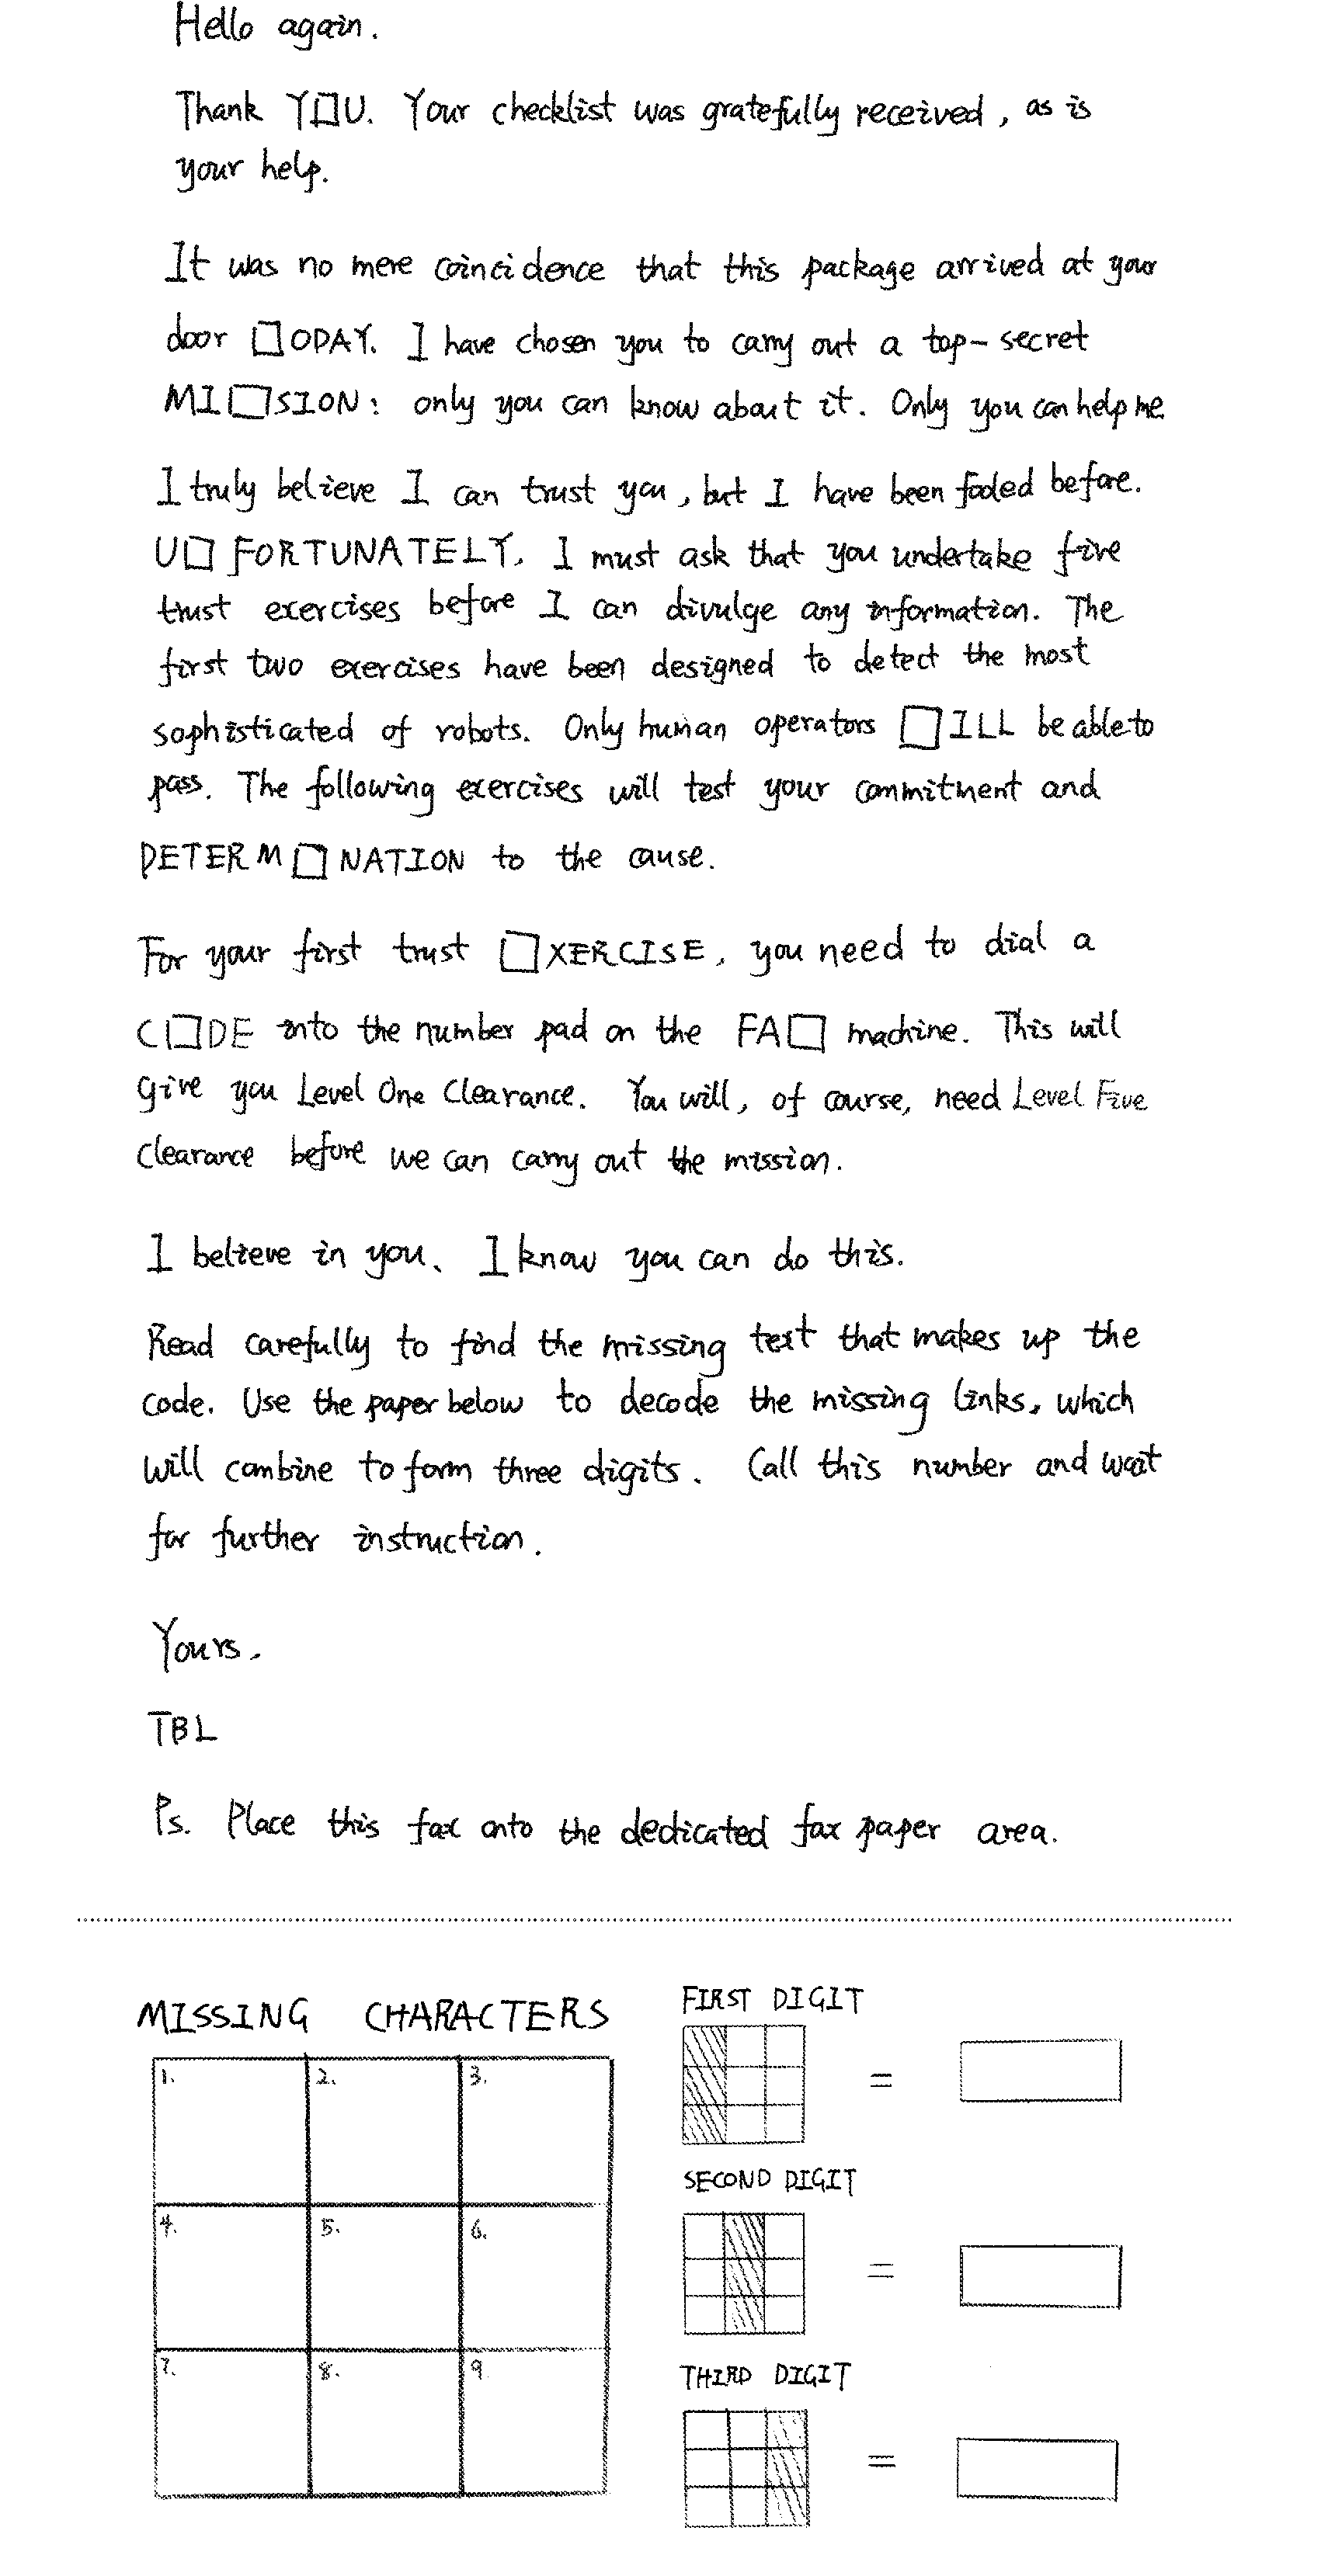 Hello again.
Thank Y□U. Your checklist was gratefully received, as is
your help.
It was no mere coincidence that this package arrived at your
door □ODAY. I have chosen you to carry out a top-secret
MI□SION: only you can know about it. Only you can help me
I truly believe I can trust you, but I have been fooled before.
U□FORTUNATELY, I must ask that you undertake five
trust exercises before I can divulge any information. The
first two exercises have been designed to detect the most
sophisticated of robots. Only human operators □ILL be able to
pass. The following exercises will test your commitment and
DETERM□NATION to the cause.
For your first trust □XERCISE, you need to dial a
C□DE into the number pad on the FA□ machine. This will
give you Level One Clearance. You will, of course, need Level Five
Clearance before we can carry out the mission.
I believe in you. I know you can do this.
Read carefully to find the missing text that makes up the
code. Use the paper below to decode the missing links, which
will combine to form three digits. Call this number and wait
for further instruction.
Yours,
TBL
Ps. Place this fax onto the dedicated fax paper area.
MISSING CHARACTERS
1. 2. 3.
4. 5. 6.
7. 8. 9.
FIRST DIGIT
=
SECOND DIGIT
=
THIRD DIGIT
=